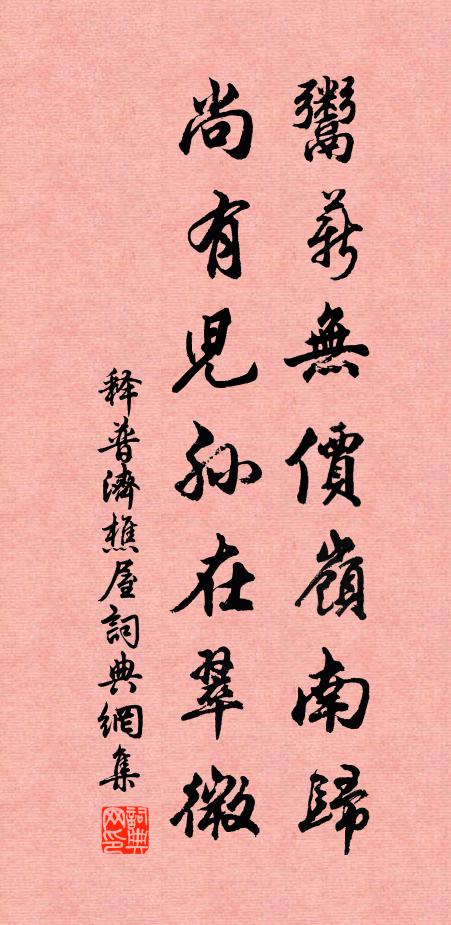 鬻薪無價嶺南歸
尚有兒孫在翠微
释普濟樵屋詞典網集
詞典网印